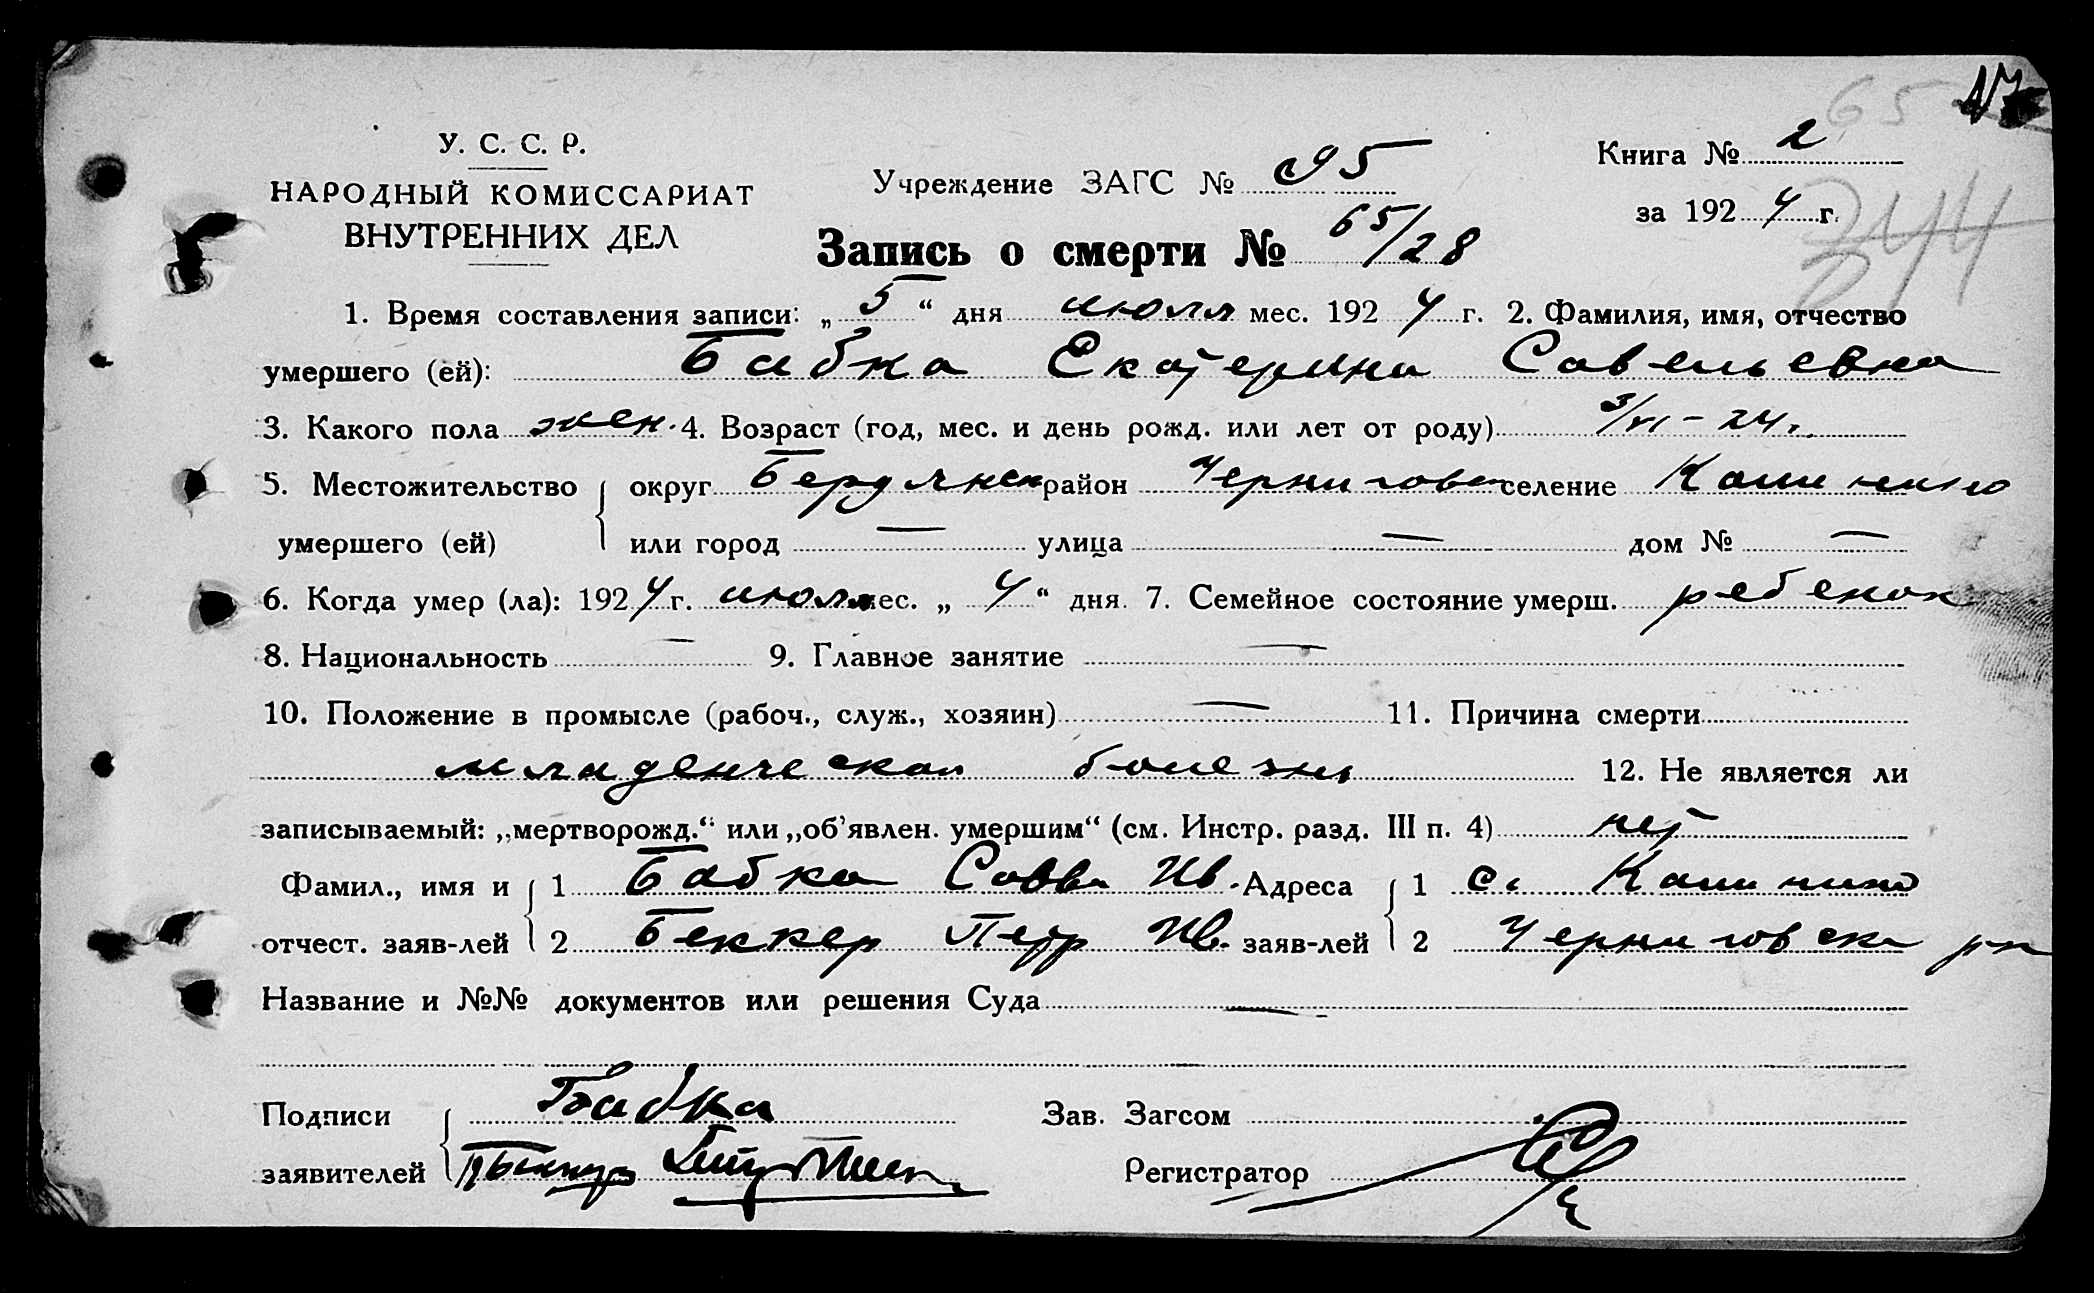 17
65
У. С. С. Р.
НАРОДНЫЙ КОМИССАРИАТ
ВНУТРЕННИХ ДЕЛ
Учреждение ЗАГС № 95
Книга № 2
за 1924 г.
244
Запись о смерти № 65/28
1. Время составления записи: „5“ дня июля мес. 1924 г. 2. Фамилия, имя, отчество
умершего (ей): Бабка Екатерина Савельевна
3. Какого пола жен. 4. Возраст (год, мес. и день рожд. или лет от роду) 3/VI – 24 г.
5. Местожительство округ Бердянск район Черниговск селение Калинино
умершего (ей) или город — улица — дом № —
6. Когда умер (ла): 1924 г. июля мес. „4“ дня. 7. Семейное состояние умерш. ребенок
8. Национальность — 9. Главное занятие —
10. Положение в промысле (рабоч., служ., хозяин) — 11. Причина смерти
младенческая болезнь 12. Не является ли
записываемый: „мертворожд.“ или „об’явлен. умершим“ (см. Инстр. разд. III п. 4) нет
Фамил., имя и 1 Бабка Савва Ив. Адреса 1 с. Калинино
отчест. заяв-лей 2 Беккер Петр Ив. заяв-лей 2 Черниговск р-н
Название и №№ документов или решения Суда —
Подписи Бабка Зав. Загсом
заявителей Регистратор